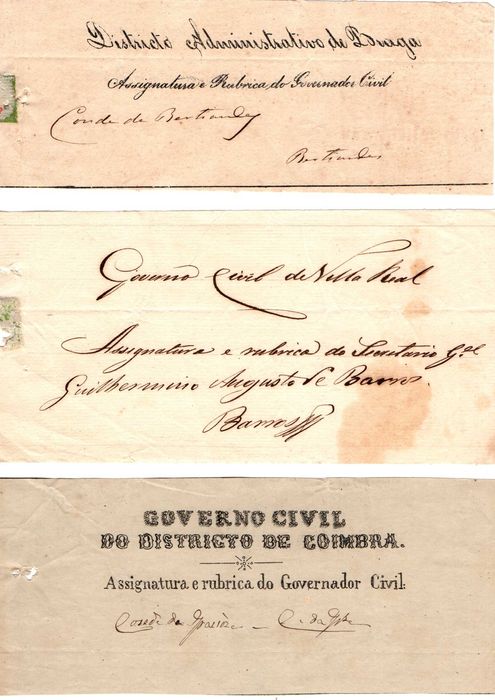 Districto Administrativo de Braga
Assignatura e Rubrica do Governador Civil
Conde de Bertiandos
Bertiandos
Governo Civil de Villa Real
Assignatura e rubrica do Secretario G.al
Guilhermino Augusto de Barros.
Barros
GOVERNO CIVIL
DO DISTRICTO DE COIMBRA.
Assignatura e rubrica do Governador Civil: